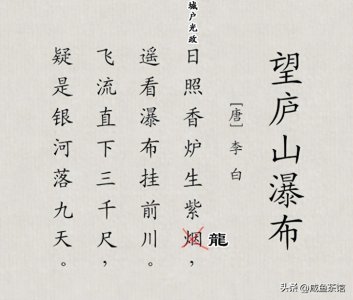 望庐山瀑布
［唐］李白
城户光政
日照香炉生紫烟，龍
遥看瀑布挂前川。
飞流直下三千尺，
疑是银河落九天。
头条 @咸鱼茶馆